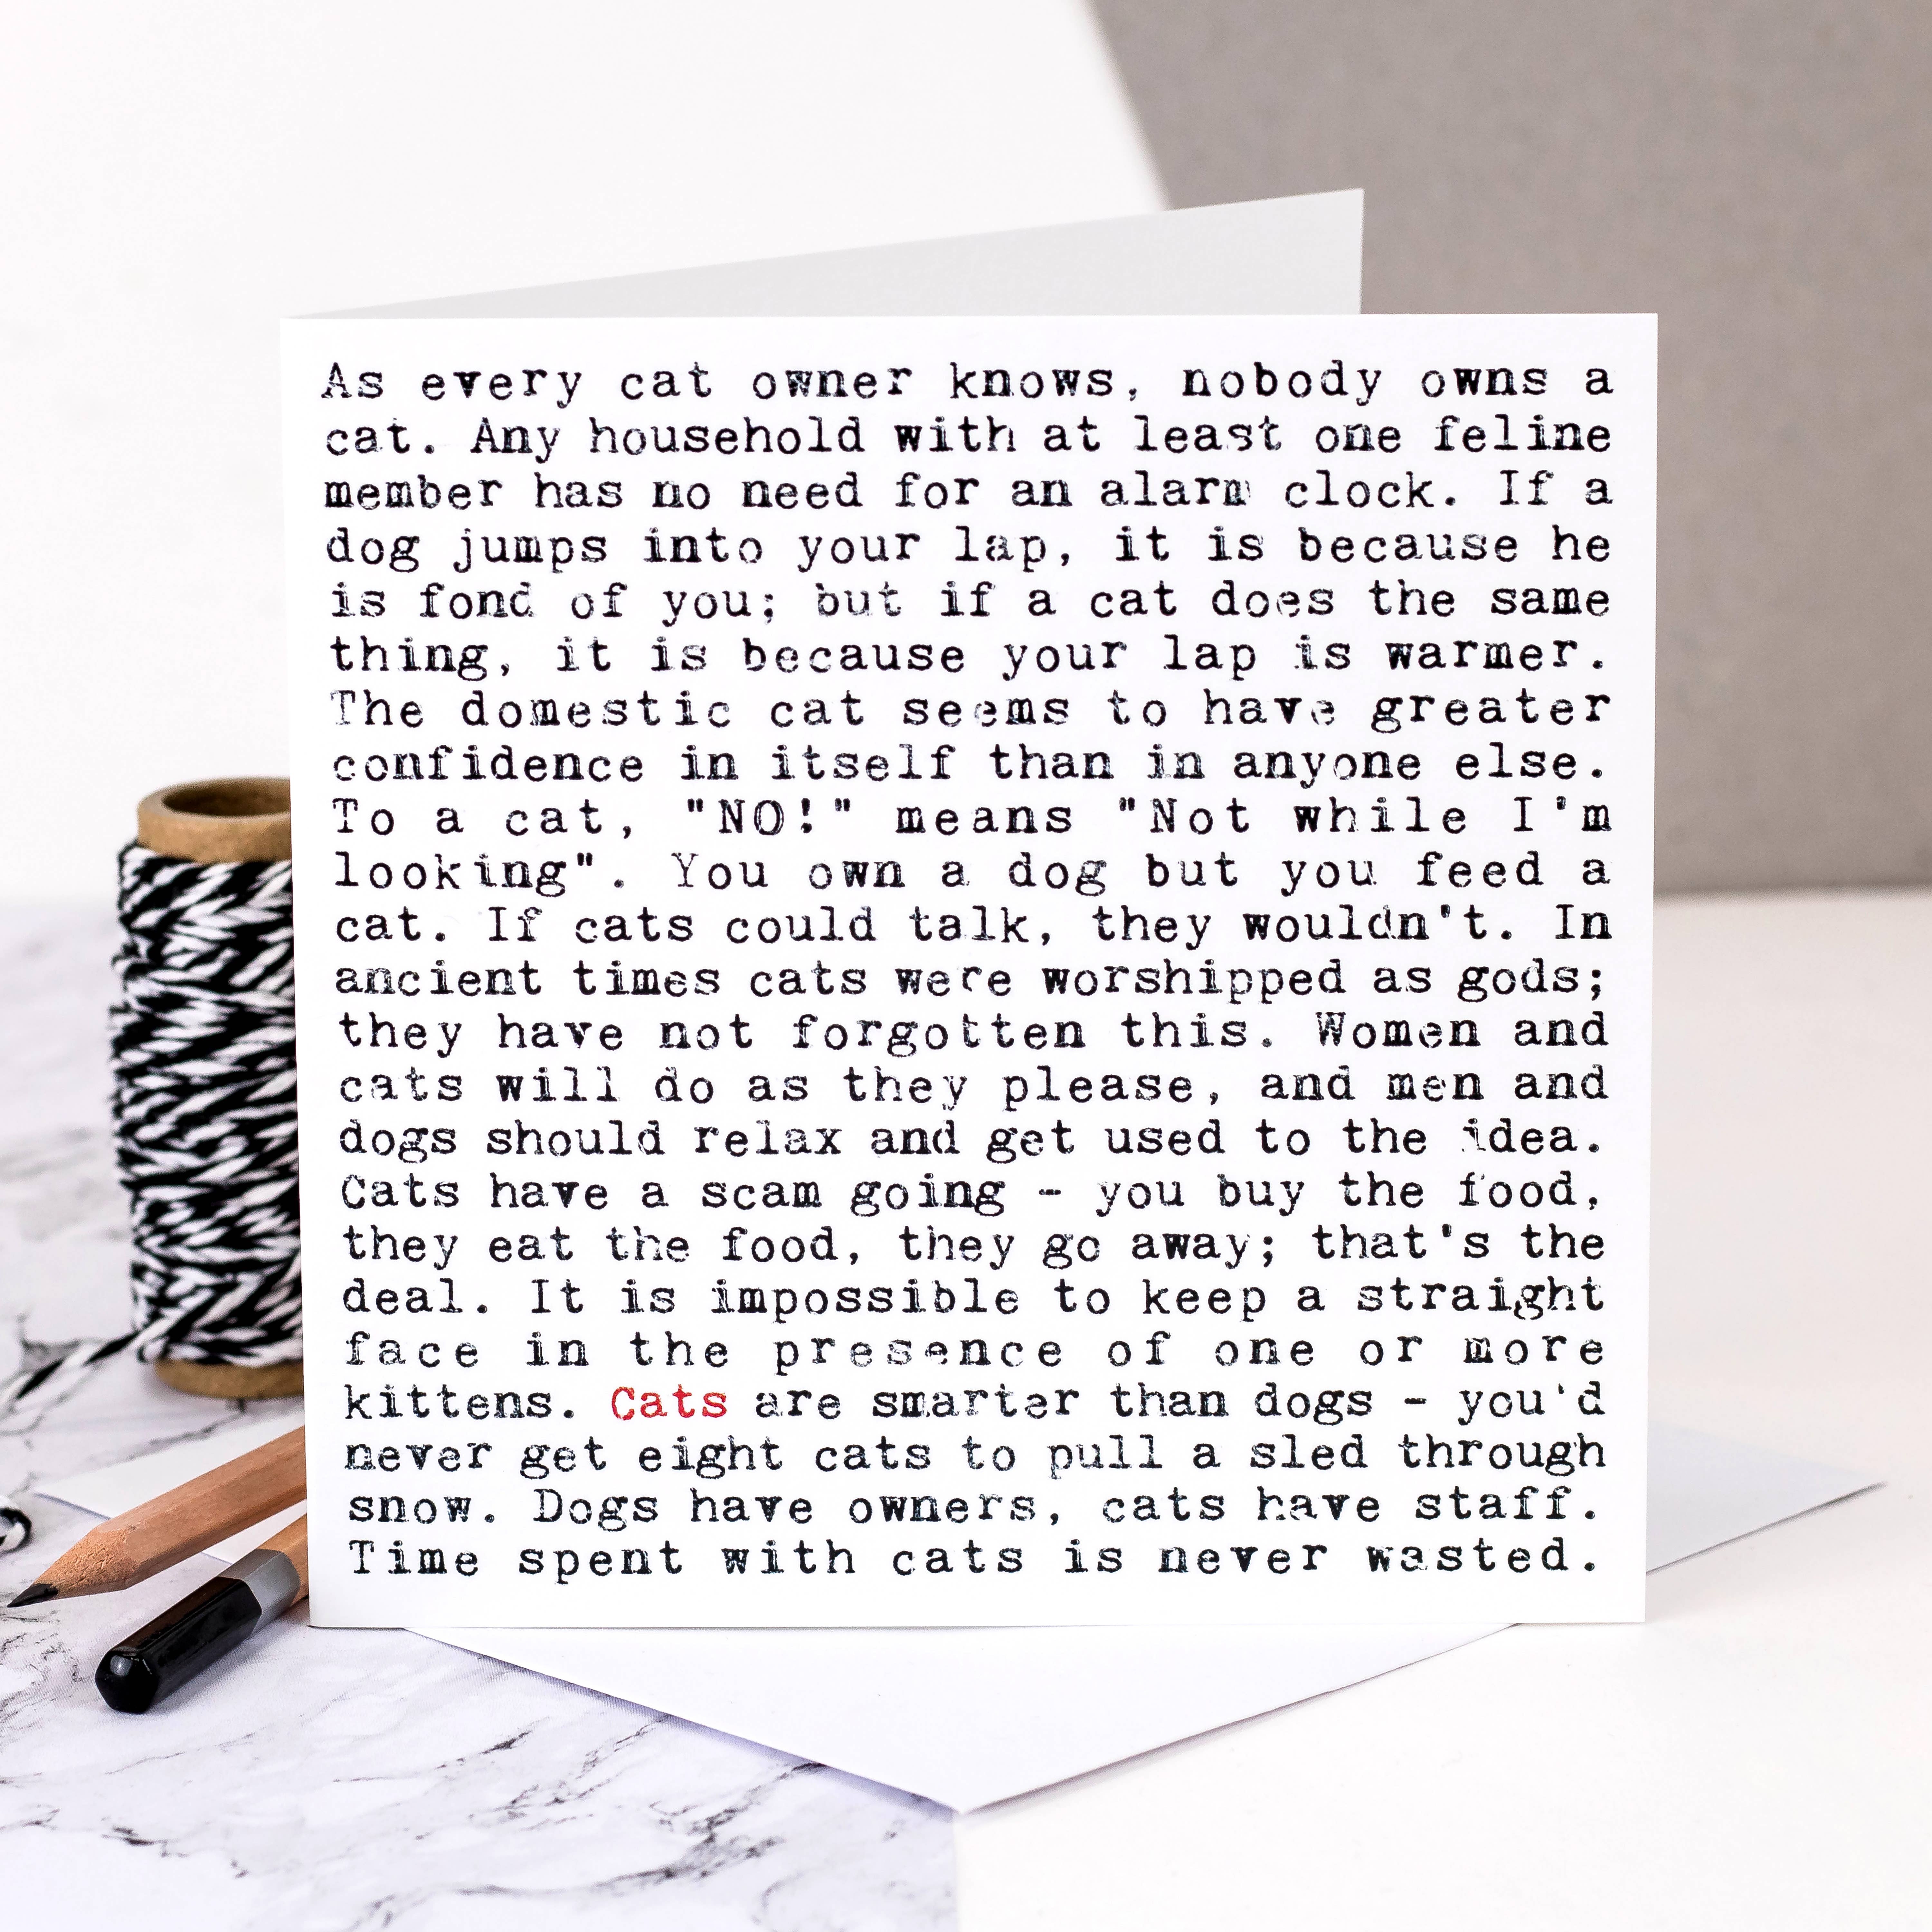 As every cat owner knows, nobody owns a
cat. Any household with at least one feline
member has no need for an alarm clock. If a
dog jumps into your lap, it is because he
is fond of you; but if a cat does the same
thing, it is because your lap is warmer.
The domestic cat seems to have greater
confidence in itself than in anyone else.
To a cat, "NO!" means "Not while I'm
looking". You own a dog but you feed a
cat. If cats could talk, they wouldn't. In
ancient times cats were worshipped as gods;
they have not forgotten this. Women and
cats will do as they please, and men and
dogs should relax and get used to the idea.
Cats have a scam going - you buy the food,
they eat the food, they go away; that's the
deal. It is impossible to keep a straight
face in the presence of one or more
kittens. Cats are smarter than dogs - you'd
never get eight cats to pull a sled through
snow. Dogs have owners, cats have staff.
Time spent with cats is never wasted.